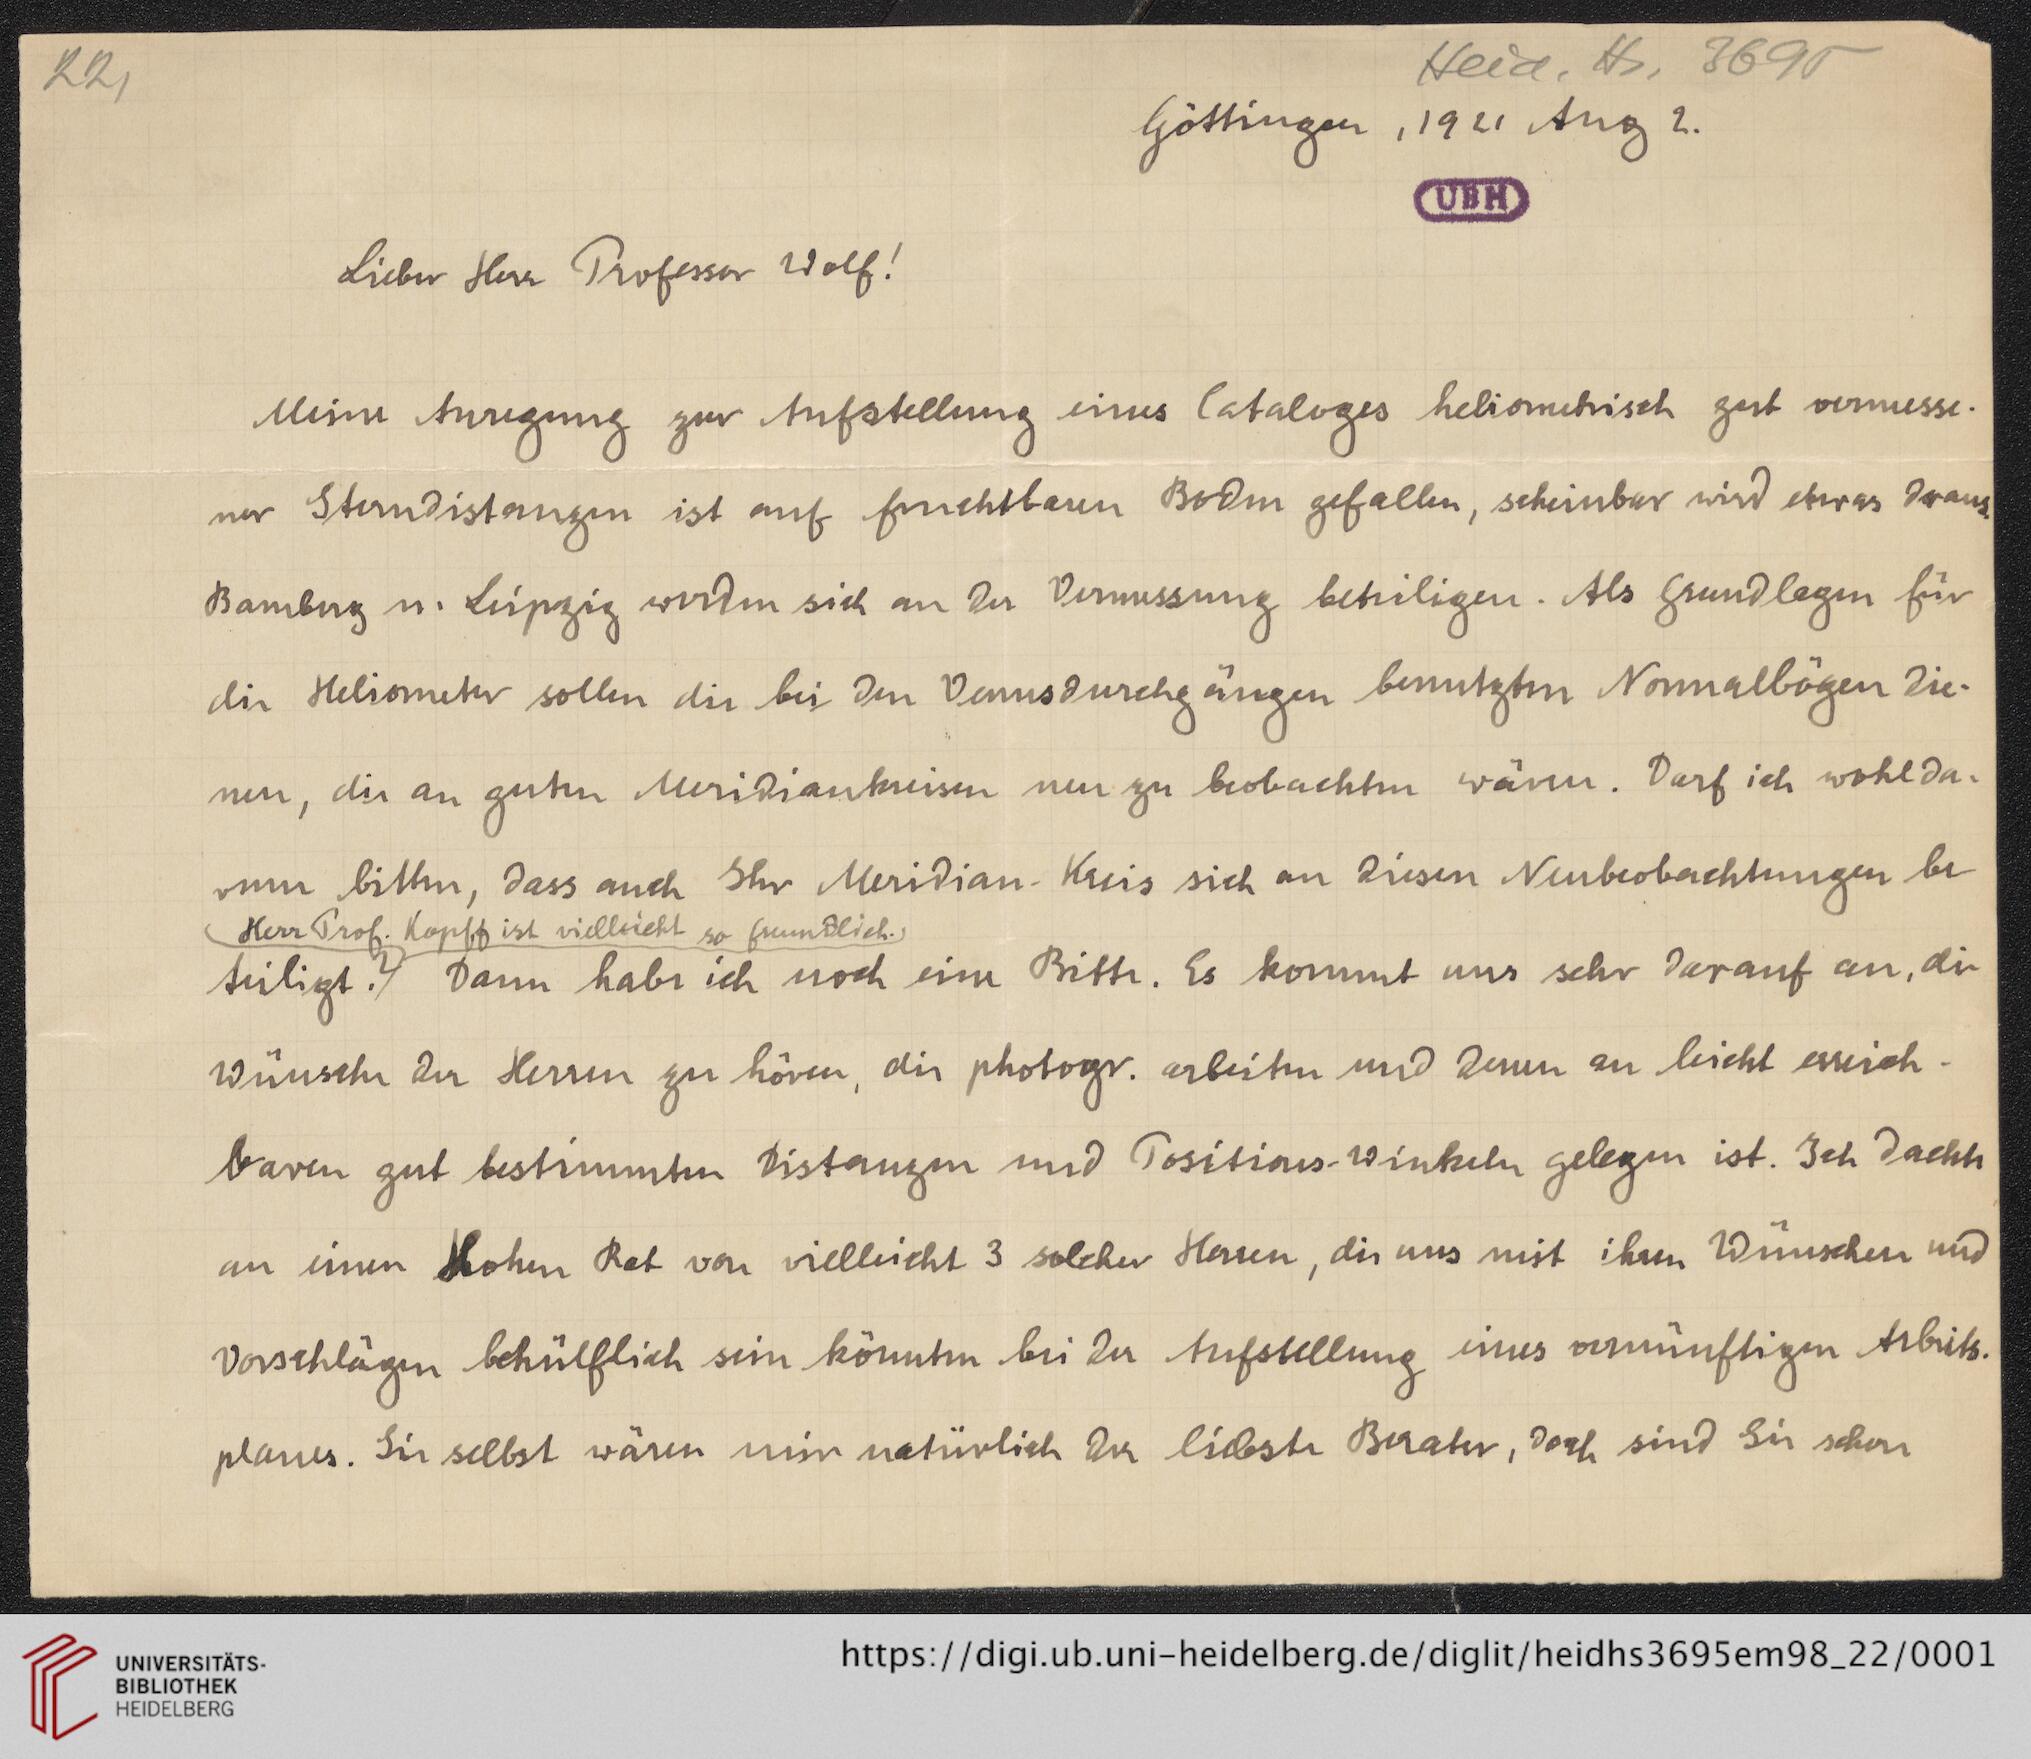 22,
Heid. Hs. 3695
Göttingen, 1921 Aug 2.
UBH
Lieber Herr Professor Wolf!
Meine Anregung zur Aufstellung eines Cataloges heliometrisch gut vermesse-
ner Sterndistanzen ist auf fruchtbaren Boden gefallen, scheinbar wird etwas draus.
Bamberg u. Leipzig werden sich an der Vermessung beteiligen. Als Grundlagen für
die Heliometer sollen die bei den Venusdurchgängen benutzten Normalbögen die-
nen, die an guten Meridiankreisen neu zu beobachten wären. Darf ich wohl da-
rum bitten, dass auch Ihr Meridian-Kreis sich an diesen Neubeobachtungen be
(Herr Prof. Kopff ist vielleicht so freundlich.)
teiligt? Dann habe ich noch eine Bitte. Es kommt uns sehr darauf an, die
Wünsche der Herren zu hören, die photogr. arbeiten und denen an leicht erreich-
baren gut bestimmten Distanzen und Positions-Winkeln gelegen ist. Ich dachte
an einen Hohen Rat von vielleicht 3 solcher Herren, die uns mit ihren Wünschen und
Vorschlägen behülflich sein könnten bei der Aufstellung eines vernünftigen Arbeits-
planes. Sie selbst wären mir natürlich der liebste Berater, doch sind Sie schon
UNIVERSITÄTS-
BIBLIOTHEK
HEIDELBERG
https://digi.ub.uni-heidelberg.de/diglit/heidhs3695em98_22/0001